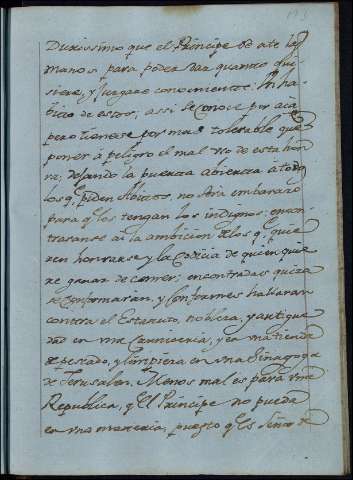 Durissimo que el Principe se ate las
manos para poder dar quanto qui
siere, y juzgare conveniente. Un ha
bito de estos; assi se conoce por acà
pero tienese por mas tolerable que
poner à peligro el mal uso de esta hon
rra; dejando la puerta abierta à todos
los q. piden Abitos, no seria embarazo
para q. los tengan los indignos: encon
traranse ai la ambicion de los q. quie
ren honrrarse y la Codicia de quien quie
re ganar de comer; encontradas quiza
se conformaran, y conformes hallaran
contra el Estatuto, nobleza, y antigue
dad en una Carniceria, y en una tienda
de pescado, y limpieza en una Sinagoga
de Jerusalen. Menos mal es para una
Republica, q. el Principe no pueda
en una materia, puesto q. es Señor